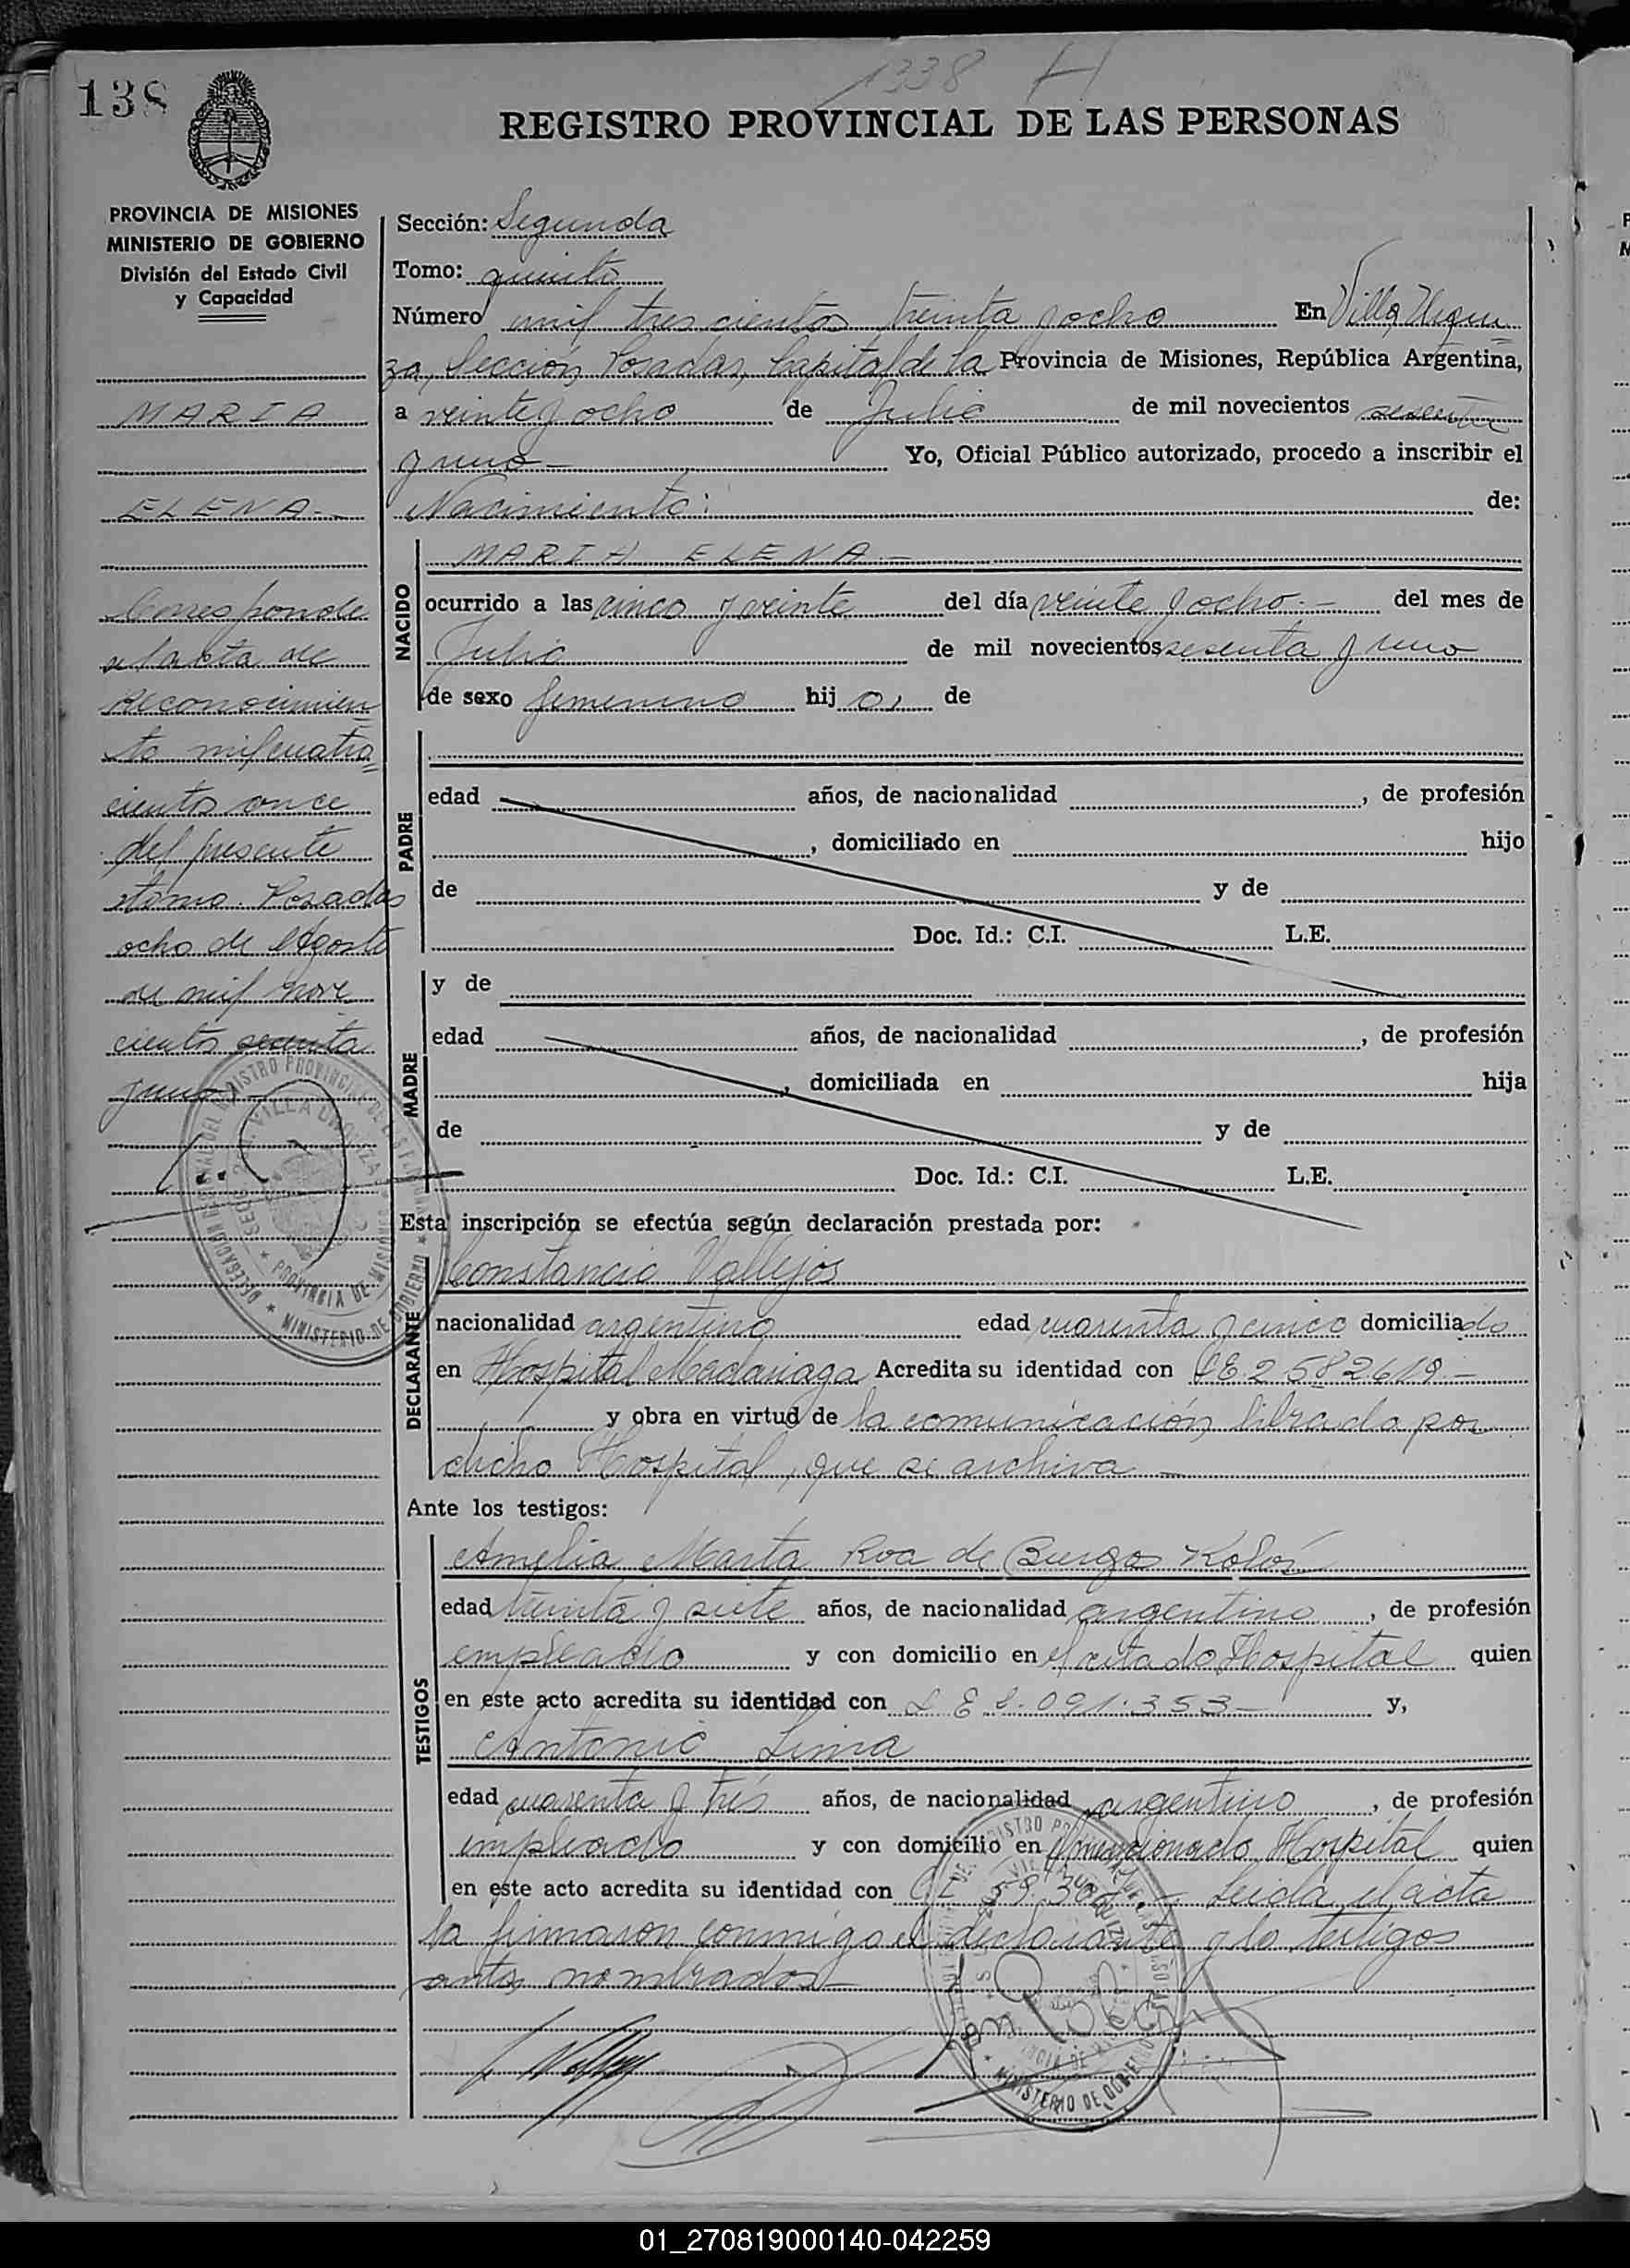 1338 H
138
REGISTRO PROVINCIAL DE LAS PERSONAS
PROVINCIA DE MISIONES
MINISTERIO DE GOBIERNO
División del Estado Civil
y Capacidad
MARIA
ELENA.-
Corresponde
al acta de
Reconocimien
to mil cuatro
cientos once
del presente
tomo. Posadas
ocho de Agosto
de mil nove
cientos sesenta
y uno-
Sección: Segunda
Tomo: quinto
Número mil trescientos treinta y ocho En Villa Urqui
za, Sección Posadas, Capital de la Provincia de Misiones, República Argentina,
a veinte y ocho de Julio de mil novecientos sesenta
y uno- Yo, Oficial Público autorizado, procedo a inscribir el
Nacimiento: de:
NACIDO
MARIA ELENA.-
ocurrido a las cinco y veinte del día veinte y ocho.- del mes de
Julio de mil novecientos sesenta y uno
de sexo femenino hij o, de
PADRE
edad años, de nacionalidad , de profesión
, domiciliado en hijo
de y de
Doc. Id.: C.I. L.E.
MADRE
y de
edad años, de nacionalidad , de profesión
, domiciliada en hija
de y de
Doc. Id.: C.I. L.E.
Esta inscripción se efectúa según declaración prestada por:
DECLARANTE
Constancio Vallejos
nacionalidad argentino edad cuarenta y cinco domiciliado
en Hospital Madariaga Acredita su identidad con LE. 2582619.-
y obra en virtud de la comunicación librada por
dicho Hospital, que se archiva -
Ante los testigos:
TESTIGOS
Amelia Marta Roa de Burgos
edad treinta y siete años, de nacionalidad argentino, de profesión
empleado y con domicilio en el citado Hospital quien
en este acto acredita su identidad con L E 091.353- y,
Antonio Lima
edad cuarenta y tres años, de nacionalidad argentino, de profesión
empleado y con domicilio en el mencionado Hospital quien
en este acto acredita su identidad con - Leída el acta
la firmaron conmigo el declarante y lo testigos
antes nombrados-
DELEGACION DEL REGISTRO PROVINCIAL DE LAS PERSONAS
SECC. 2da. VILLA URQUIZA
PROVINCIA DE MISIONES
MINISTERIO DE GOBIERNO
MINISTERIO DE GOBIERNO
01_270819000140-042259